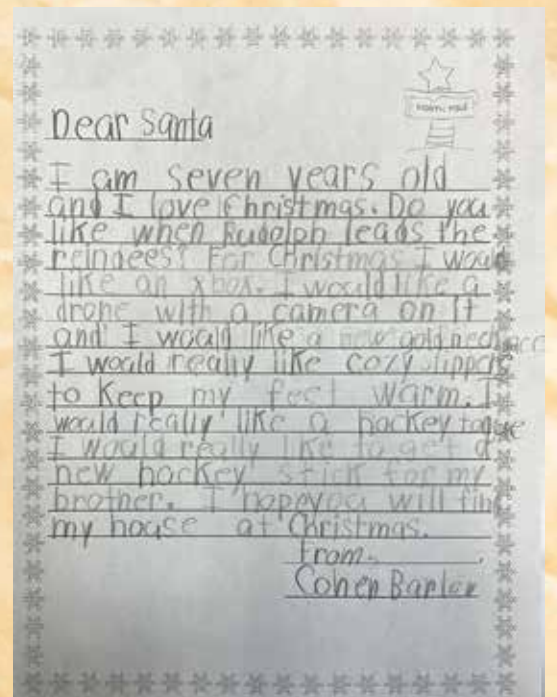 NORTH POLE
Dear Santa
I am seven years old
and I love Christmas. Do you
like when Rudolph leads the
reindees? For Christmas I would
like an xbox. I would like a
drone with a camera on it
and I would like a new gold necklace
I would really like cozy slippers
to keep my feet warm. I
would really like a hockey toque
I would really like to get a
new hockey stick for my
brother. I hope you will find
my house at Christmas.
From.
Cohen